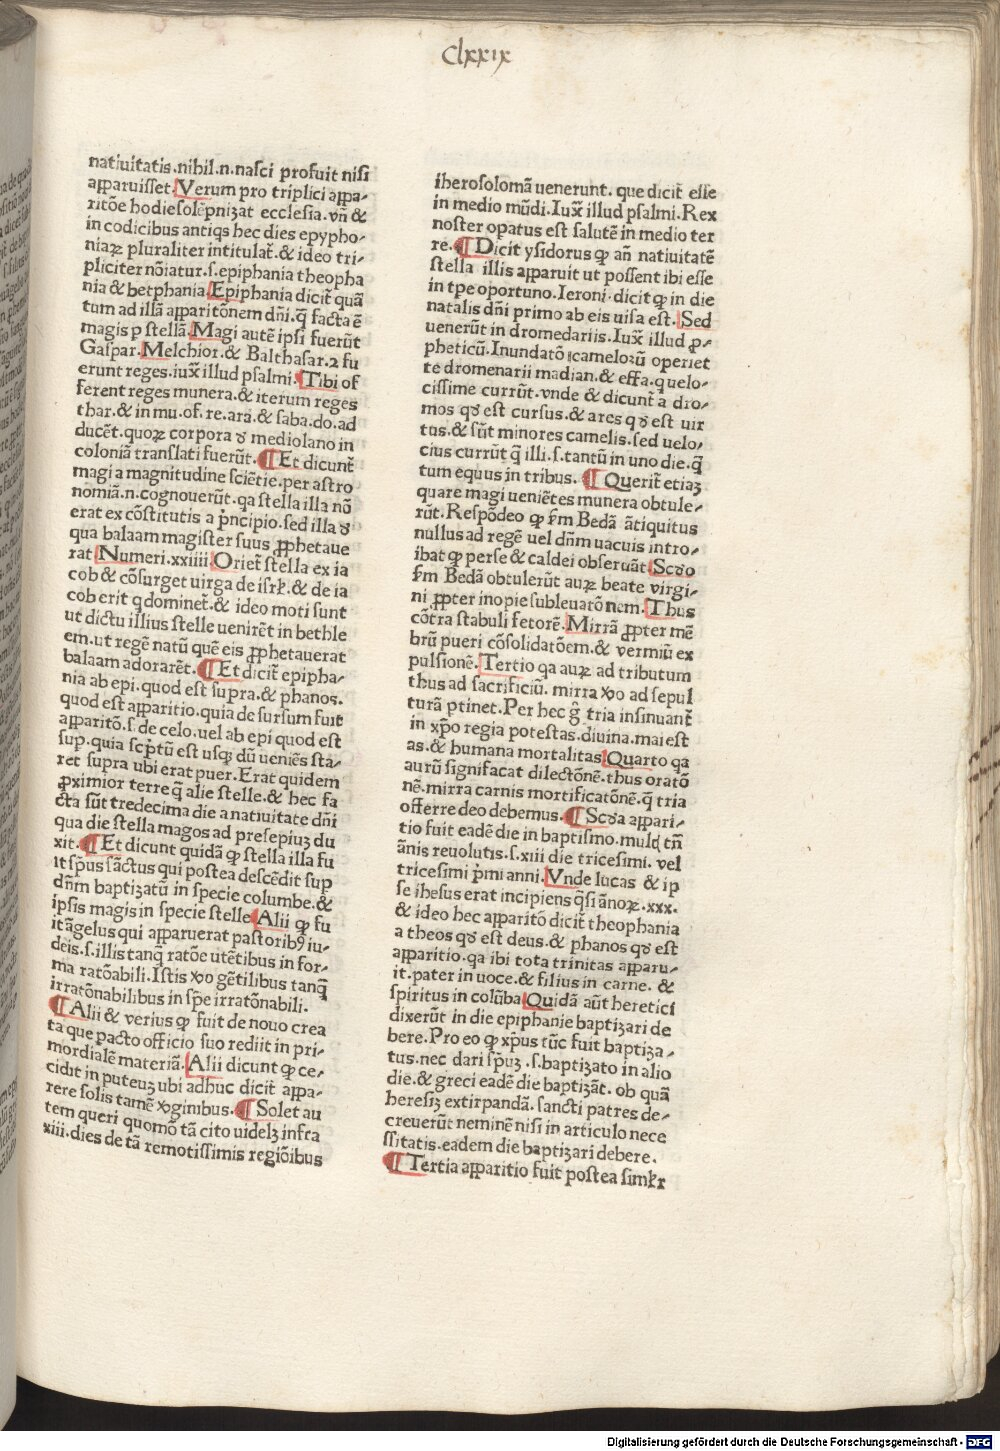 Clxxix
natiuitatis.nihil.n.nasci profuit nisi
apparuisset.Verum pro triplici appa⸗
ritōe hodie solēpnizat ecclesia.vñ &
in codicibus antiqs hec dies epypho⸗
niaꝝ pluraliter intitulat̃.& ideo tri⸗
pliciter nōiatur.s.epiphania theopha
nia & betphania.Epiphania dicit̃ quā
tum ad illā apparitōnem dñi.q̄ facta ē
magis p stellā.Magi autē ipsi fuerūt
Gaspar.Melchior.& Balthasar.⁊ fu
erunt reges.iux̃ illud psalmi.Tibi of
ferent reges munera.& iterum reges
thar.& in mu.of.re.ara.& saba.do.ad
ducēt.quoꝝ corpora ꝺ mediolano in
coloniā translati fuerūt.¶Et dicunt̃
magi a magnitudine sciētie.per astro
nomiā.n.cognouerūt.qa stella illa nō
erat ex cōstitutis a p̄ncipio.sed illa ꝺ
qua balaam magister suus ꝓphetaue
rat Numeri.xxiiii Oriet̃ stella ex ia
cob & cōsurget uirga de isrł.& de ia
cob erit q dominet̃.& ideo moti sunt
ut dictu illius stelle uenirēt in bethle
em.ut regē natū quē eis ꝓphetauerat
balaam adorarēt.¶Et dicit̃ epipha⸗
nia ab epi.quod est supra.& phanos.
quod est apparitio.quia de sursum fuit
apparitō.s.de celo.uel ab epi quod est
sup.quia sc̃ptū est usqꝫ dū ueniēs sta⸗
ret supra ubi erat puer.Erat quidem
ꝓximior terre q̄ alie stelle.& hec fa
cta sūt tredecima die a natiuitate dñi
qua die stella magos ad presepiuꝫ du
xit.¶Et dicunt quidā ꝙ stella illa fu
it sp̄us sāctus qui postea descēdit sup
dñm baptizatū in specie columbe.&
ipsis magis in specie stelle Alii ꝙ fu
it āgelus qui apparuerat pastoribꝰ iu⸗
deis.s.illis tanq̄ ratōe utētibus in for⸗
ma ratōabili.Istis xṗo gētilibus tanq̄
irratōnabilibus in sp̄e irratōnabili.
¶Alii & verius ꝙ fuit de nouo crea
ta que pacto officio suo rediit in pri⸗
mordialē materiā.Alii dicunt ꝙ ce⸗
cidit in puteuꝫ ubi adhuc dicit̃ appa⸗
rere solis tamē xoginibus.¶Solet au
tem queri quomō tā cito uidelꝫ infra
xiii.dies de tā remotissimis regiōibus
iherosolomā uenerunt. que dicit̃ esse
in medio mūdi.Iux̃ illud psalmi.Rex
noster opatus est salutē in medio ter
re.¶Dicit ysidorus ꝙ añ natiuitatē
stella illis apparuit ut possent ibi esse
in tpe oportuno.Ieroni.dicit ꝙ in die
natalis dñi primo ab eis uisa est.Sed
uenerūt in dromedariis.Iux̃ illud ꝓ⸗
pheticū.Inundatō cameloꝝū operiet
te dromenarii madian.& effa.quelo⸗
cissime currūt.vnde & dicunt̃ a dro⸗
mos qꝺ est cursus.& ares qꝺ est uir
tus.& sūt minores camelis.sed uelo⸗
cius currūt q̄ illi.s.tantū in uno die.q̄
tum equus in tribus.¶Querit̃ etiaꝫ
quare magi ueniētes munera obtule⸗
rūt.Respōdeo ꝙ ẜm Bedā āntiquitus
nullus ad regē uel dñm uacuis intro⸗
ibat ꝙ perse & caldei obseruāt Scꝺo
ẜm Bedā obtulerūt auꝝ beate virgi⸗
ni ꝓpter inopie subleuatōnem.Thus
cōtra stabuli fetorē.Mirrā ꝓpter mē
brū pueri cōsolidatōem.& vermiū ex
pulsionē.Tertio qa auꝝ ad tributum
thus ad sacrificiū. mirra xṗo ad sepul
turā ptinet.Per hec g̃ tria insinuant̃
in xṗo regia potestas.diuina.maiest
as.& humana mortalitas Quarto qa
aurū signifacat dilectōnē.thus oratō
nē.mirra carnis mortificatōnē.q̄ tria
offerre deo debemus.¶Scꝺa appari⸗
tio fuit eadē die in baptismo.mult̃ tñ
ānis reuolutis.s.xiii die tricesimi. vel
tricesimi p̄mi anni.Vnde lucas & ip
se ihesus erat incipiens q̄si ānoꝝ.xxx.
& ideo hec apparitō dicit̃ theophania
a theos qꝺ est deus.& phanos qꝺ est
apparitio.qa ibi tota trinitas apparu⸗
it.pater in uoce.& filius in carne. &
spiritus in colūba Quidā aūt heretici
dixerūt in die epiphanie baptizari de
bere.Pro eo ꝙ xṗus tūc fuit baptiza⸗
tus.nec dari sp̄uꝫ .s.baptizato in alio
die.& greci eadē die baptizāt. ob quā
heresiꝫ extirpandā. sancti patres de⸗
creuerūt neminē nisi in articulo nece
ssitatis.eadem die baptizari debere.
¶Tertia apparitio fuit postea simłr
Digitalisierung gefördert durch die Deutsche Forschungsgemeinschaft - DFG